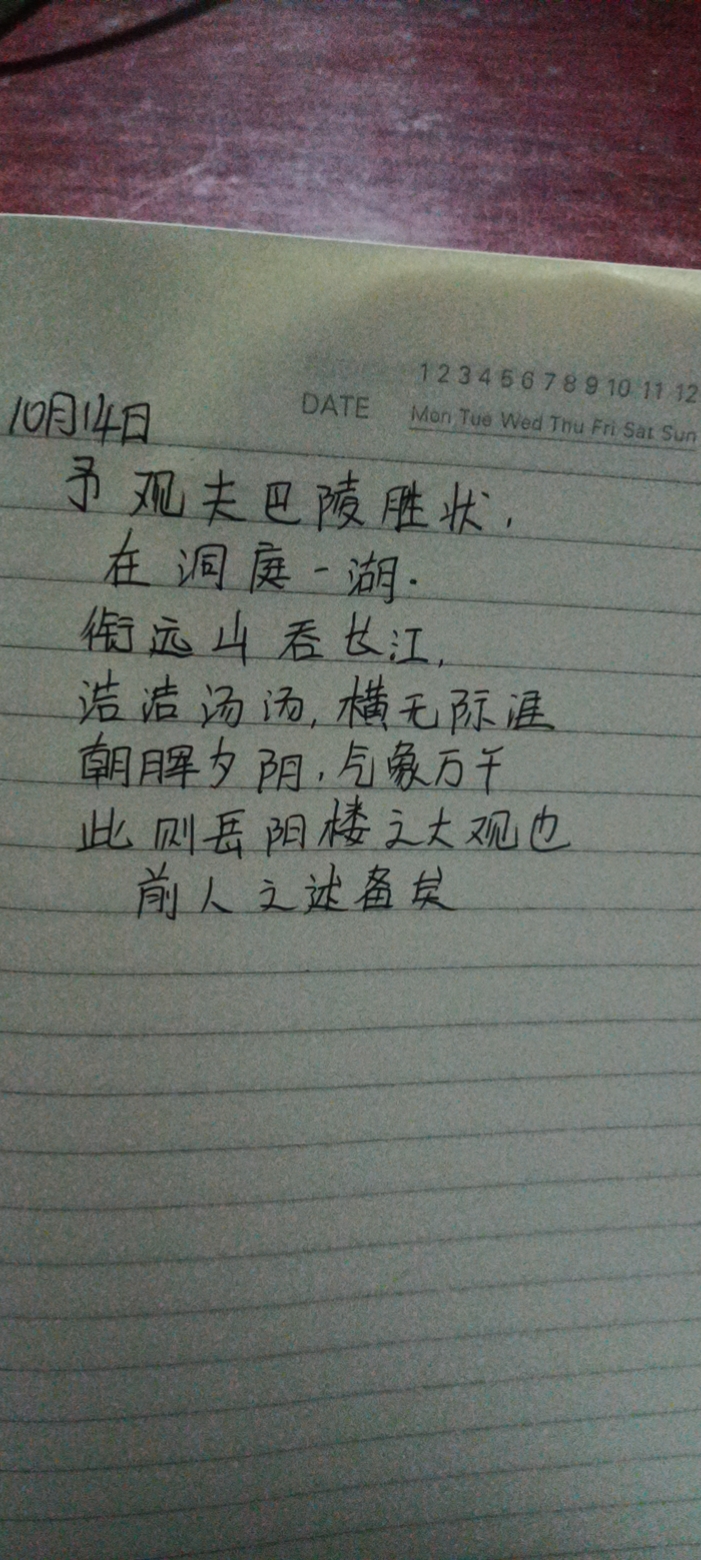 1 2 3 4 5 6 7 8 9 10 11 12
DATE Mon Tue Wed Thu Fri Sat Sun
10月14日
予观夫巴陵胜状,
在洞庭一湖.
衔远山吞长江,
浩浩汤汤,横无际涯
朝晖夕阴,气象万千
此则岳阳楼之大观也
前人之述备矣